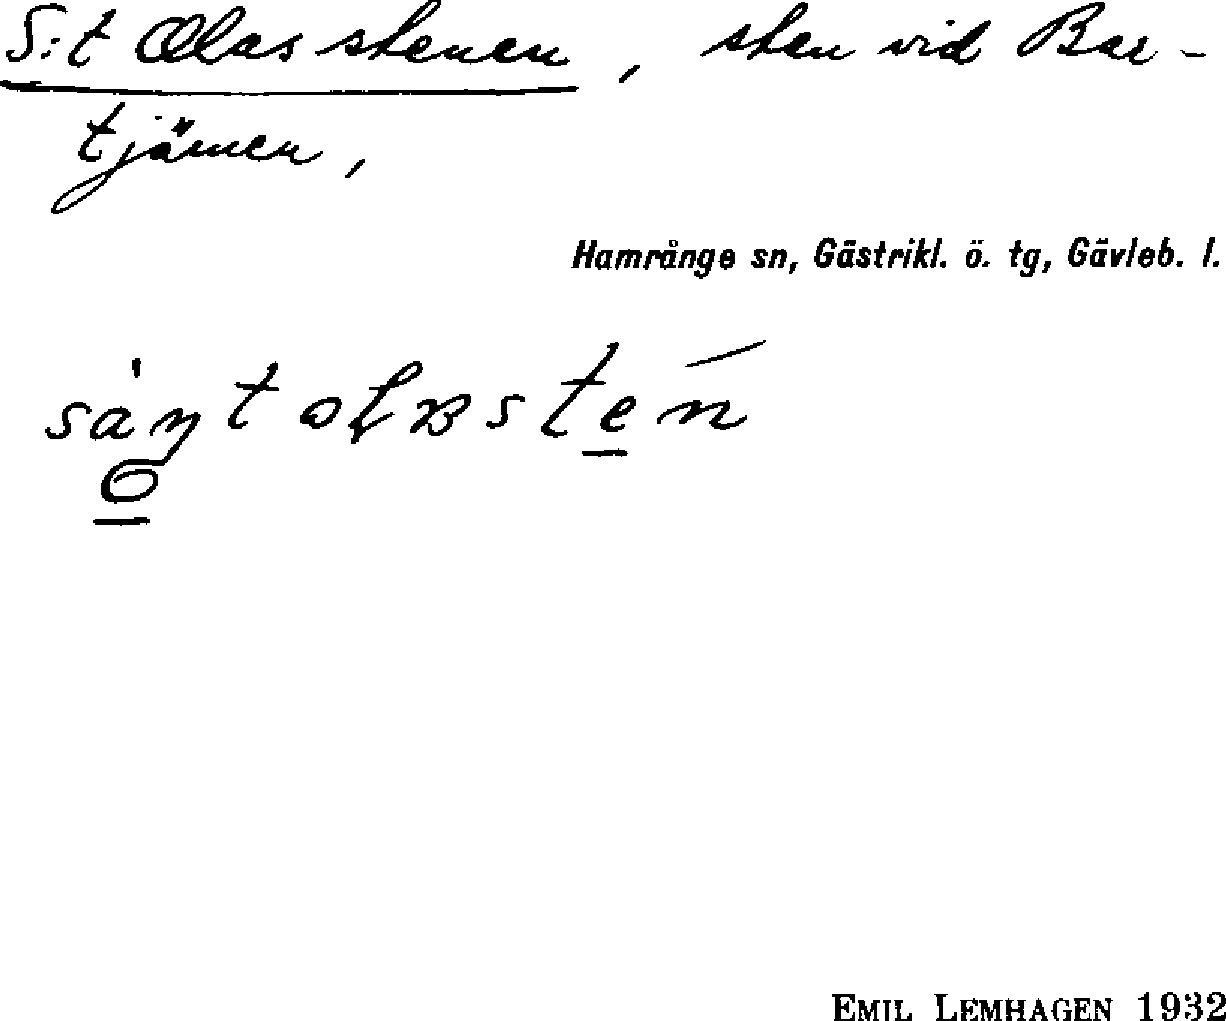 S:t Olas stenen, sten vid Bar-
tjärnen,
Hamrånge sn, Gästrikl. ö. tg, Gävleb. l.
EMIL LEMHAGEN 1932